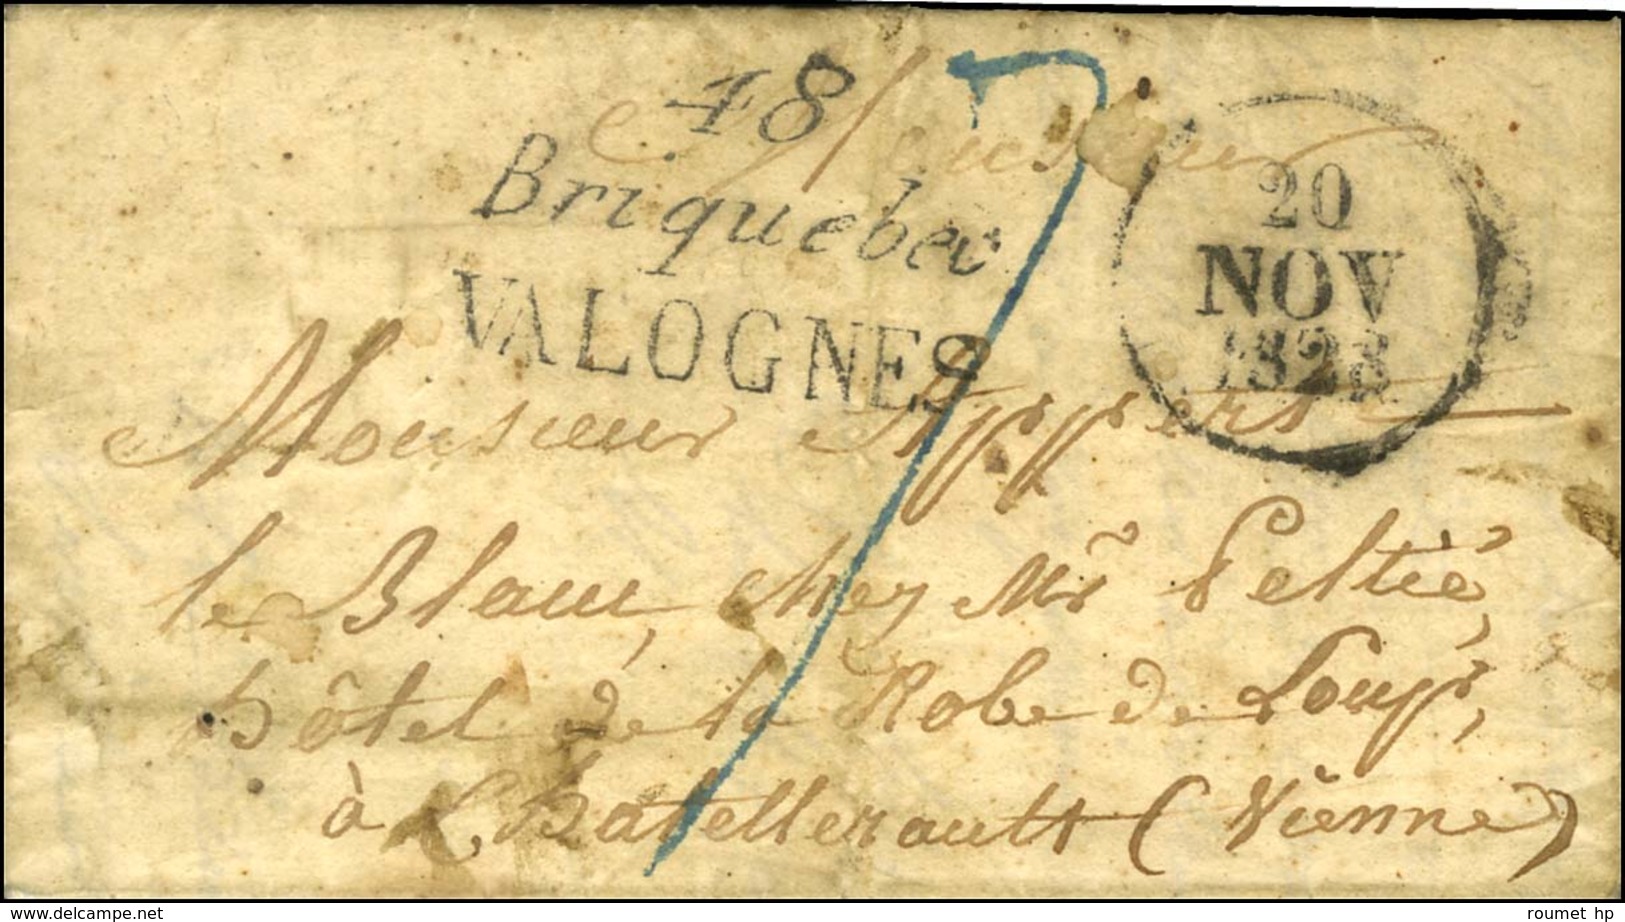 48
Briquebec
VALOGNES
20
NOV
1828
Monsieur
Monsieur Appert
le Blanc, chez Mr Peltié,
hôtel de la Robe de Loup,
à Chatellerault (Vienne)
7
delcampe.net
roumet hp